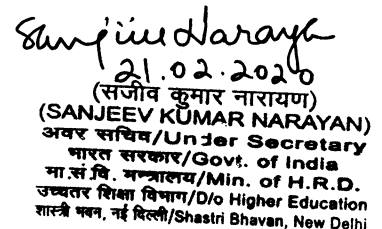 Sanjiv Narayan
21.02.2020
(सजीव कुमार नारायण)
(SANJEEV KUMAR NARAYAN)
अवर सचिव/Under Secretary
भारत सरकार/Govt. of India
मा.सं.वि. मन्त्रालय/Min. of H.R.D.
उच्चतर शिक्षा विभाग/D/o Higher Education
शास्त्री भवन, नई दिल्ली/Shastri Bhavan, New Delhi